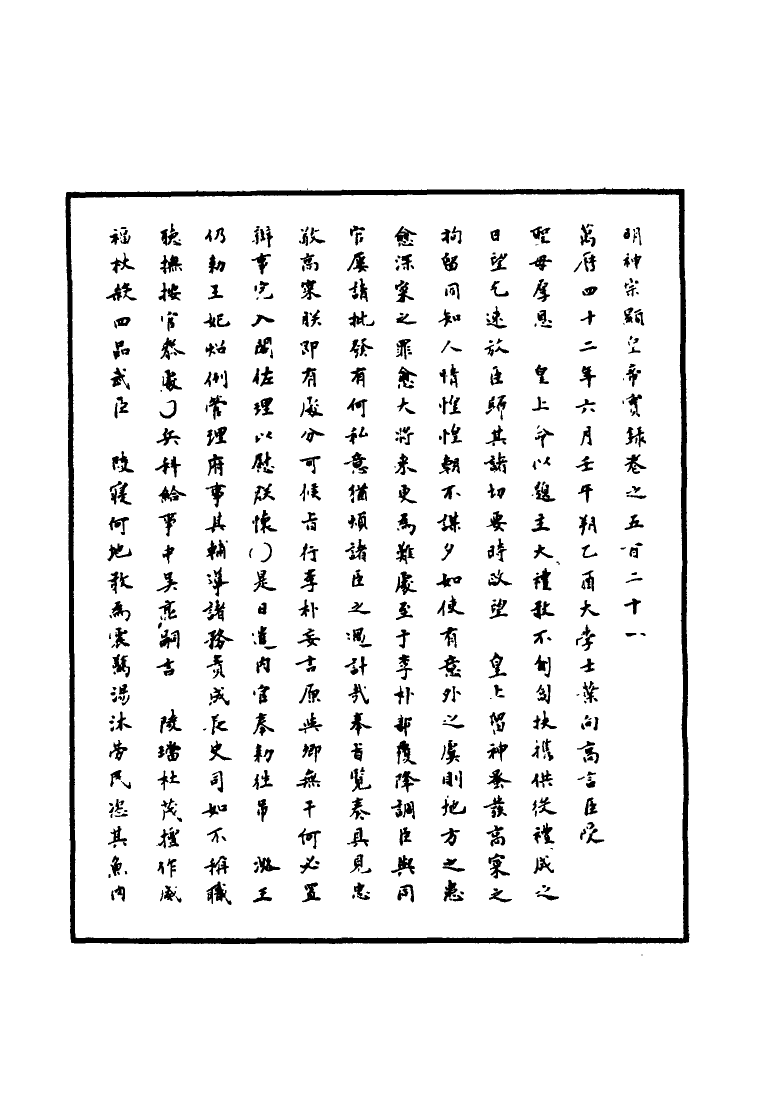 明神宗顯皇帝實錄卷之五百二十一
萬曆四十二年六月壬午朔乙酉大學士葉向高言臣受
聖母厚恩 皇上命以題主大禮敢不匍匐扶攜供從禮成之
日望乞速放臣歸其諸切要時政望 皇上留神蚤發高寀之
拘留同知人情惶惶朝不謀夕如使有意外之虞則地方之患
愈深寀之罪愈大將來更為難處至于李朴部覆降調臣與同
官屢請批發有何私意猶煩諸臣之過計哉奉旨覽奏具見忠
敬高寀朕即有處分可候旨行李朴妄言原與卿無干何必置
辯事完入閣佐理以慰朕懷○是日遣內官奉勑往吊 潞王
仍勑王妃炤例管理府事其輔導諸務責成長史司如不稱職
聽撫按官參處○兵科給事中吳亮嗣言 陵璫杜茂擅作威
福杖殺四品武臣 陵寢何地敢為震驚湯沐勞民恣其魚肉